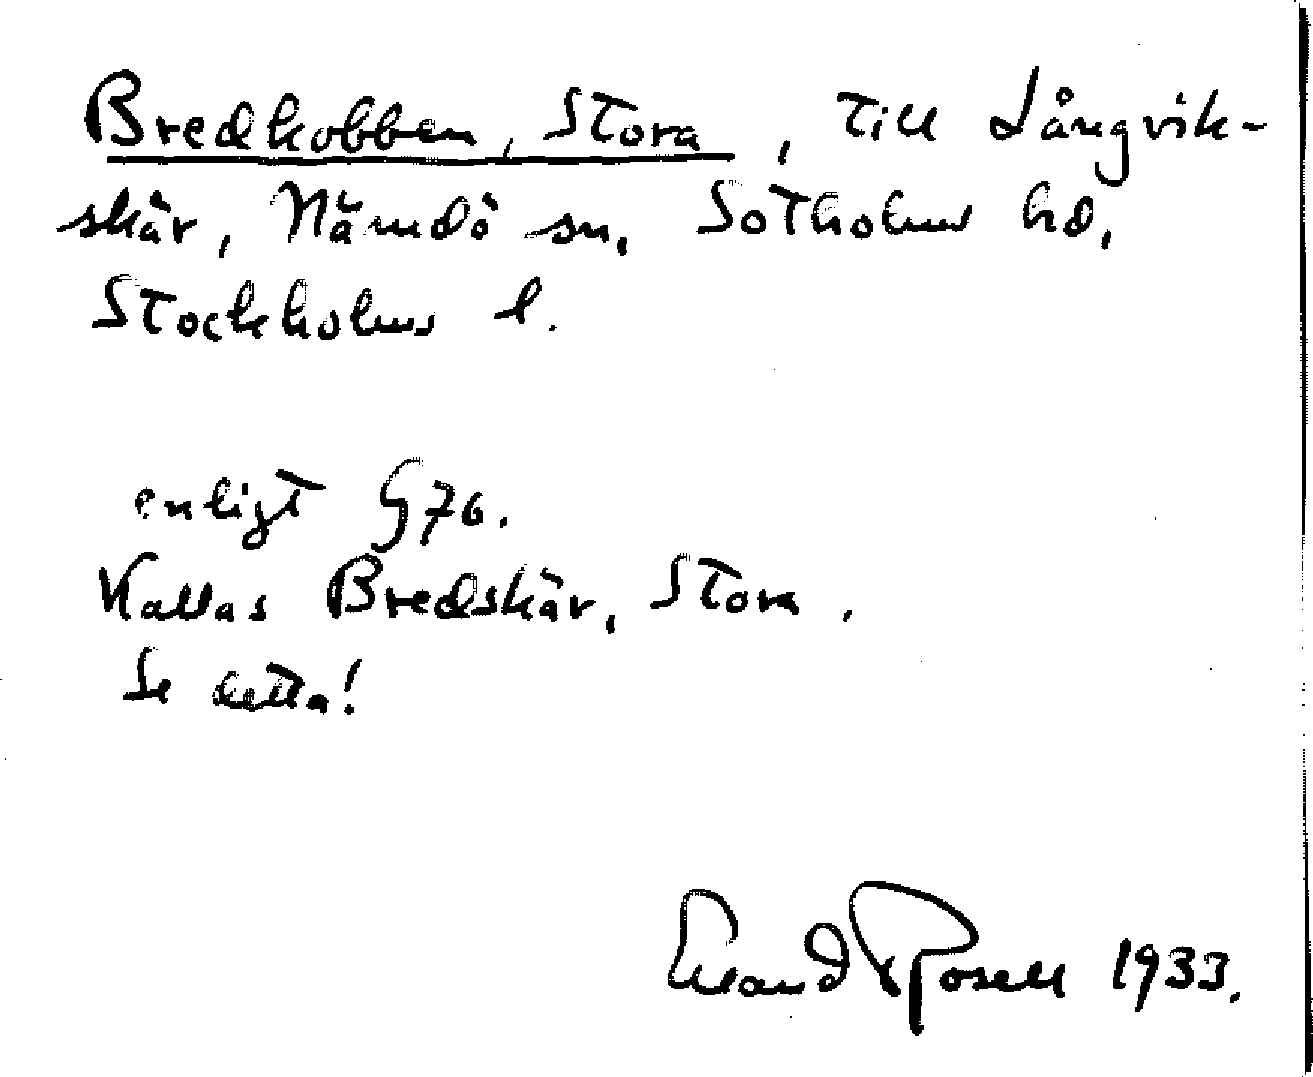 Bredkobben, Stora, till Långvik-
skär, Nämdö sn, Sotholms hd,
Stockholms l.
enligt G76.
Kallas Bredskär, Stora.
Se detta!
Erland Rosell 1933.